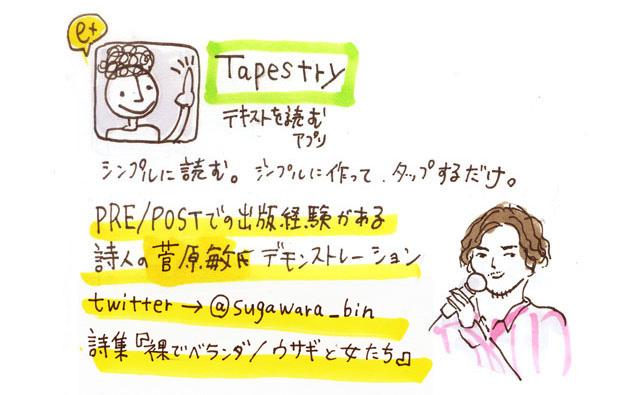 e+
Tapestry
テキストを読む
アプリ
シンプルに読む。シンプルに作って、タップするだけ。
PRE/POSTでの出版経験がある
詩人の菅原敏氏デモンストレーション
twitter→@sugawara_bin
詩集『裸でベランダ/ウサギと女たち』